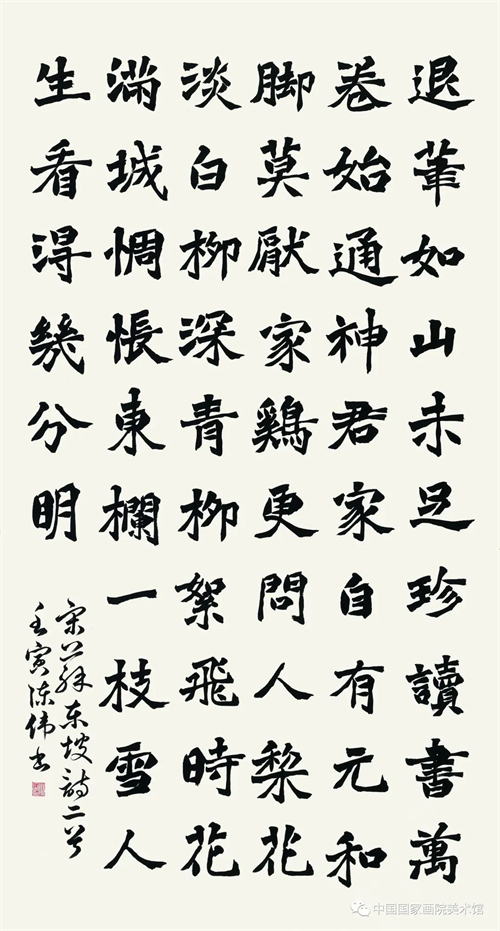 退筆如山未足珍讀書萬
卷始通神君家自有元和
脚莫厭家鷄更問人梨花
淡白柳深青柳絮飛時花
滿城惆悵東欄一枝雪人
生看得幾分明
宋蘇东坡詩二首
壬寅陈伟书
中国国家画院美术馆